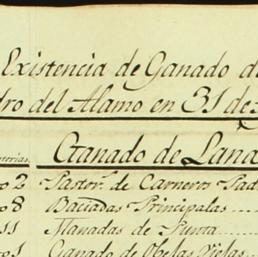 Existencia de Ganado d
dro del Alamo en 31 de
Ganado de Lana
o 2 Pastor.^s de Carneros Pad
o 8 Baciadas Principales
11 Manadas de Punta
o 1 Ganado de Obejas Viejas